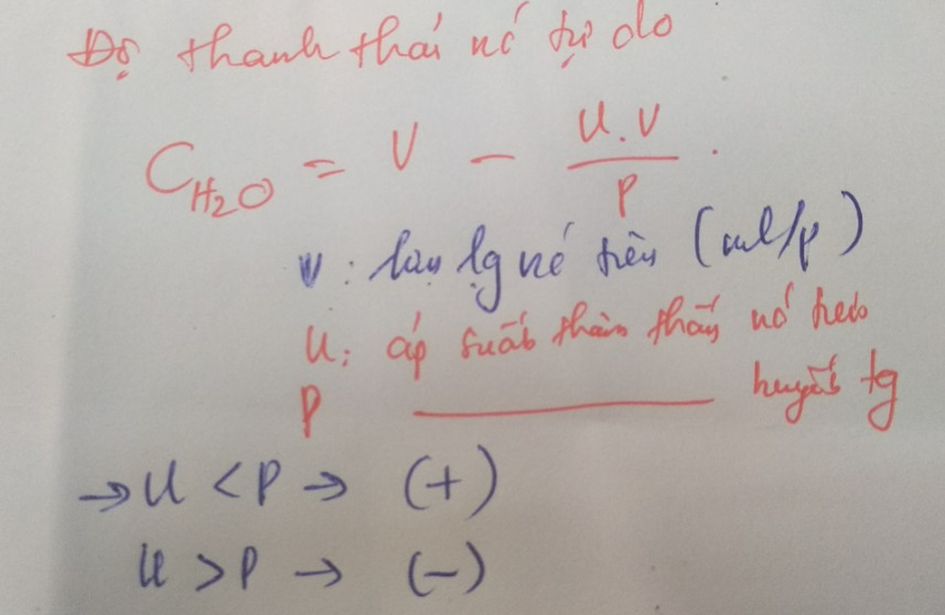 Độ thanh thải nc tự do
C_H₂O = V − (U.V)/P.
V: lưu lg nc tiểu (ml/p)
U: áp suất thẩm thấu nc tiểu
P ———— huyết tg
→ U < P → (+)
U > P → (−)